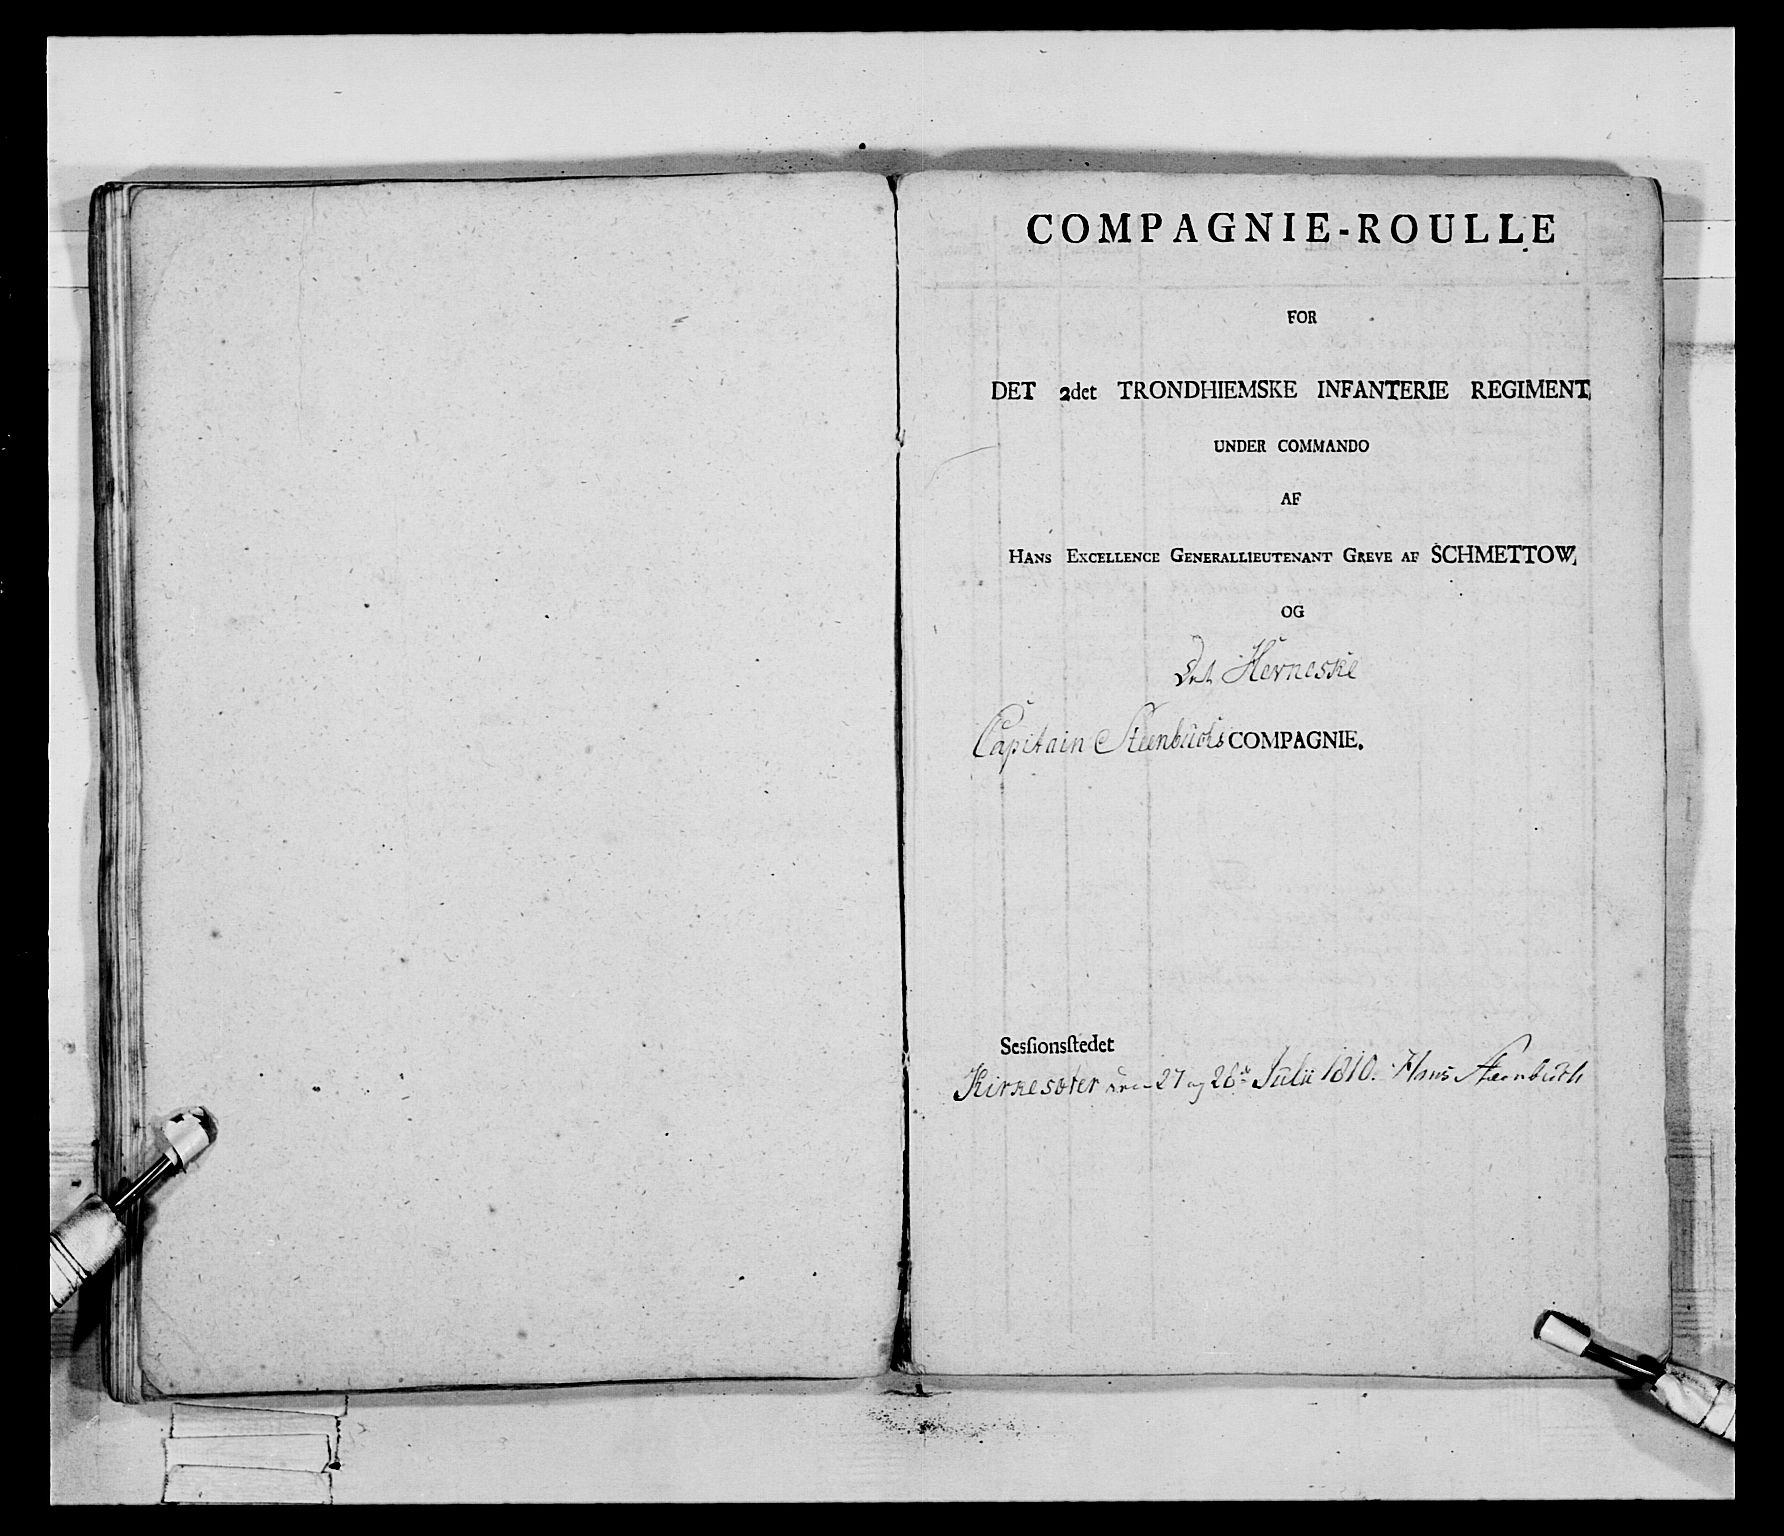 COMPAGNIE-ROULLE
FOR
DET 2det TRONDHIEMSKE INFANTERIE REGIMENT,
UNDER COMMANDO
AF
HANS EXCELLENCE GENERALLIEUTENANT GREVE AF SCHMETTOW,
OG
Det Herneske
Capitain Steenbuchs COMPAGNIE.
Sesſionsſtedet
Kirkesæter den 27 og 28de Julii 1810. Hans Steenbuch